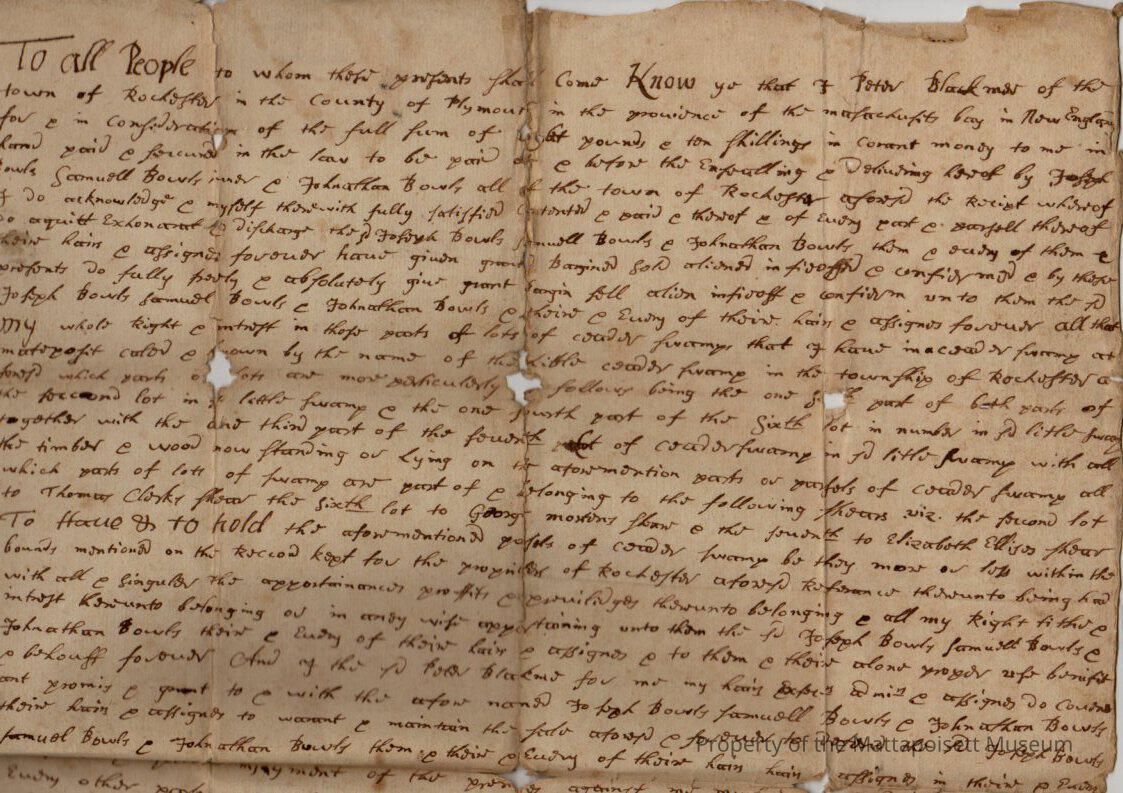 To all People to whom these presents shall Come Know ye that I Peter Blackmer of the
town of Rochester in the County of Plymouth in the province of the masachusits bay in New England
for & in Consideration of the full sum of eight pounds & ten shillings in corant money to me in
hand paid & secured in the law to be paid at & before the Ensealling & Delivering hereof by Joseph
Bowls Samuell Bowls & Johnathan Bowls all of the town of Rochester aforesd the Recipt whereof
I do acknowledge & myself therewith fully satisfied Contented & paid & thereof & of Every part & parsell thereof
do aquitt Exhonarat & discharge the sd Joseph Bowls Samuell Bowls & Johnathan Bowls them & every of them &
theire hairs & assignes forever have given granted bargined Sold aliened infieoffed & confiermed & by these
presents do fully freely & absolutely give grant bargin sell alien infieoff & confierm unto them the sd
Joseph Bowls Samuel Bowls & Johnathan Bowls & theire & Every of theire hairs & assignes forever all that
my whole Right & intrest in those parts of lots of ceader swamps that I have in a ceader swamp at
matepoisit caled & known by the name of the little ceader swamp in the township of Rochester a
foresd which parts of lots are more perticulerly as follows being the one part of both parts of
the second lot in sd little swamp & the one fourth part of the Sixth lot in number in sd little swamp
together with the one third part of the seventh lot of ceaderswamp in sd little swamp with all
the timber & wood now standing or Lying on the aforemention parts or parsels of ceader swamp all
which parts of lots of swamp are part of & belonging to the following shears viz. the second lot
to Thomas Clerks shear the Sixth lot to George mortens shear & the seventh to Elizabeth Ellises shear
To Have & to hold the aforementioned parsels of ceader swamp be they more or less within the
bounds mentioned on the Record kept for the propriters of Rochester aforesd Referance thereunto being had
with all & Singuler the apportainances proffits & previlidges thereunto belonging & all my Right title &
intrest hereunto belonging or in aney wise appertaining unto them the sd Joseph Bowls Samuell Bowls &
Johnathan Bowls theire & Every of theire hairs & assignes & to them & theire alone proper use benifit
& behouff forever And I the sd Peter Blackme for me my hairs Exec.rs admi.rs & assignes do Coven
ant promis & grant to & with the afore named Joseph Bowls Samuell Bowls & Johnathan Bowls
theire hairs & assignes to warant & maintain the sale aforesd & forever to Joseph Bowls
Samuel Bowls & Johnathan Bowls them & theire & Every of theire hairs hairs & assignes in theire & Every
Every other of the against me my
Property of the Mattapoisett Museum